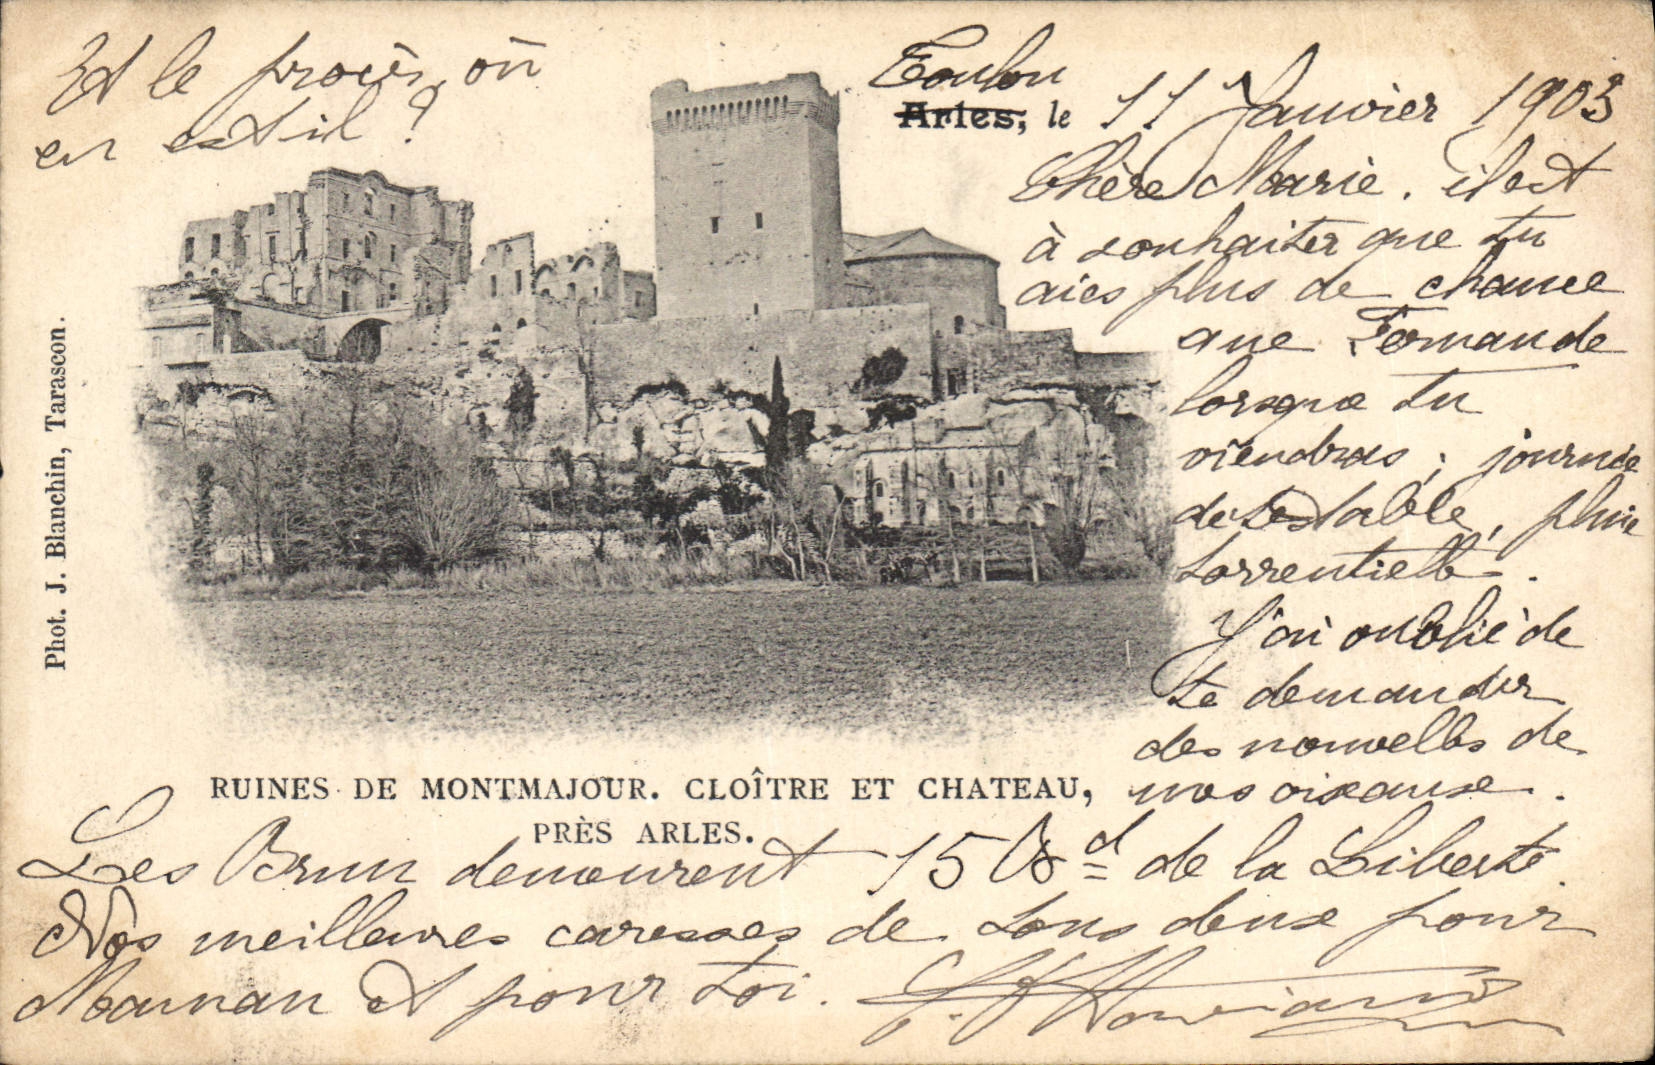 Et le procès, où
en est-il ?
Toulon
Arles, le 11 Janvier 1903
Chère Marie. il est
à souhaiter que tu
aies plus de chance
que Fernande
lorsque tu
viendras ; journée
détestable, pluie
torrentielle.
J'ai oublié de
te demander
des nouvelles de
vos oiseaux.
Phot. J. Blanchin, Tarascon.
RUINES DE MONTMAJOUR. CLOÎTRE ET CHATEAU,
PRÈS ARLES.
Les Brun demeurent 15 Bd de la Liberté.
Nos meilleures caresses de tous deux pour
Maman et pour toi.